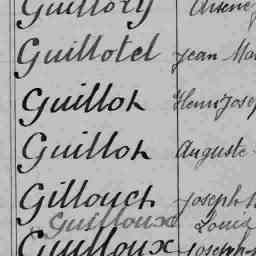 Guilloty Arsène
Guillotel Jean Ma
Guillon Henri Josep
Guillon Auguste
Gillouch Joseph
Guilloux Louis
Guilloux Joseph